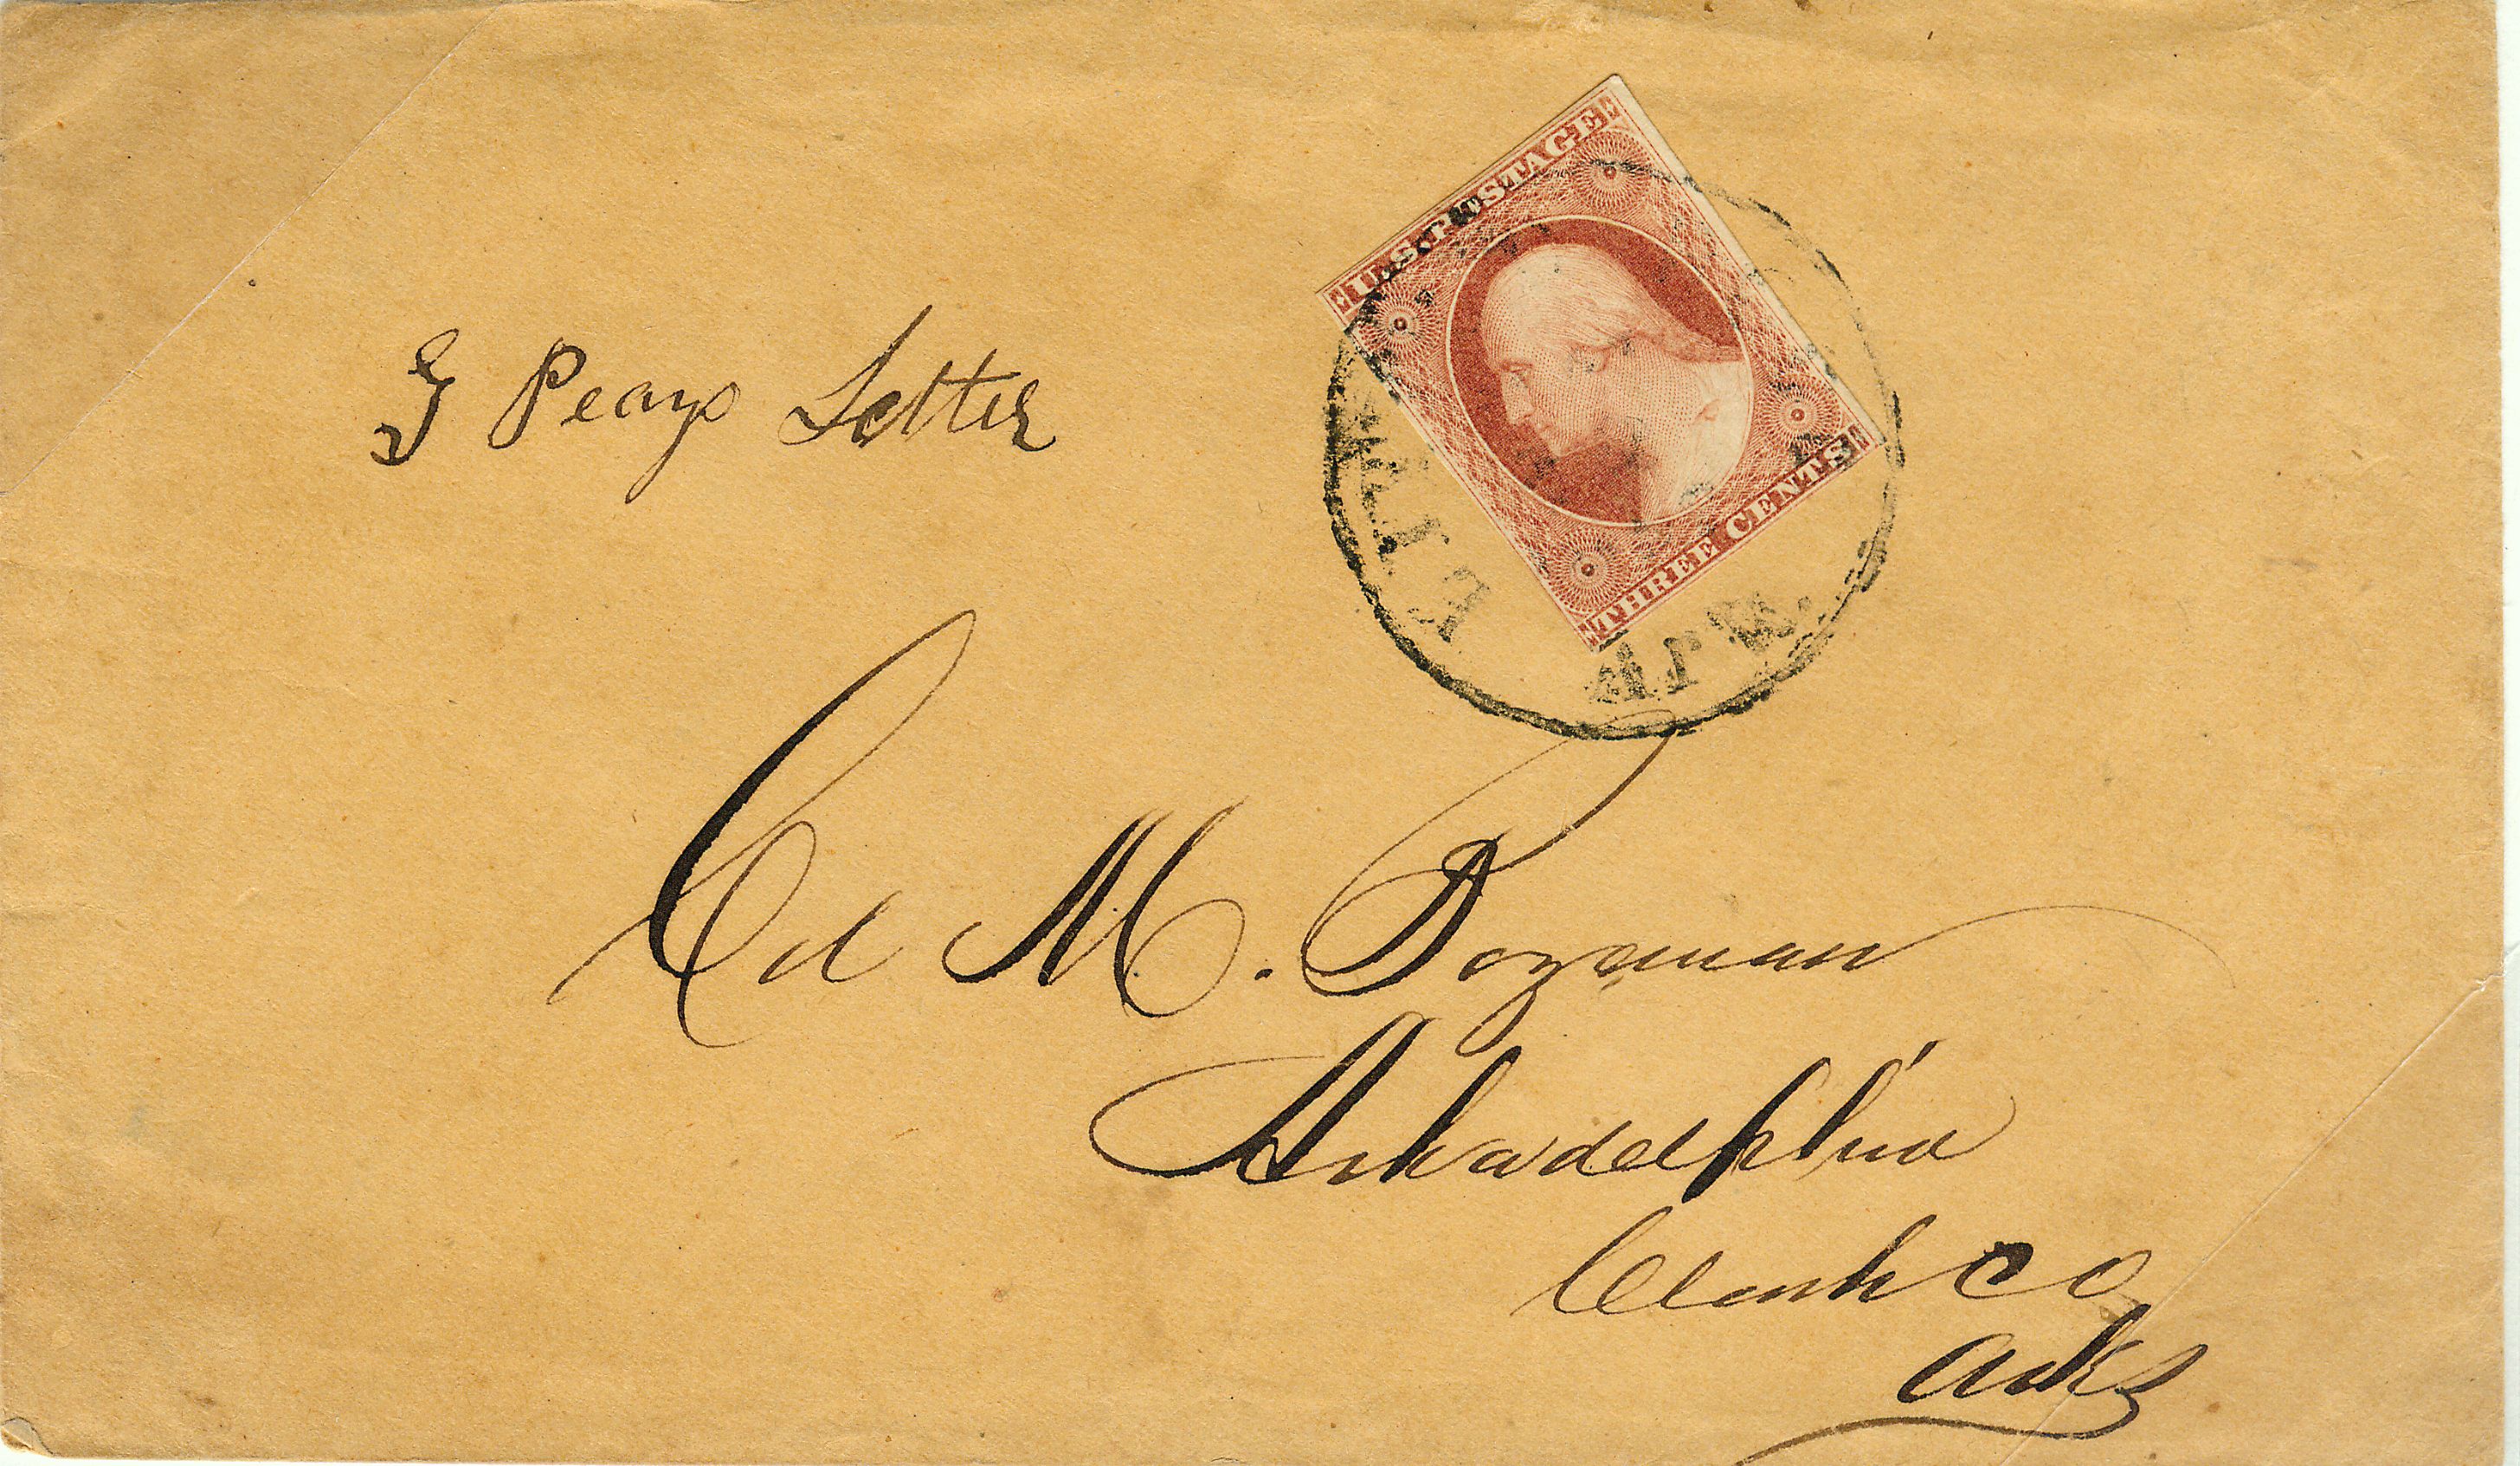 U.S. POSTAGE
THREE CENTS
LITT
Ark.
G Peays Letter
Col M. Bozeman
Arkadelphia
Clark Co
Arks